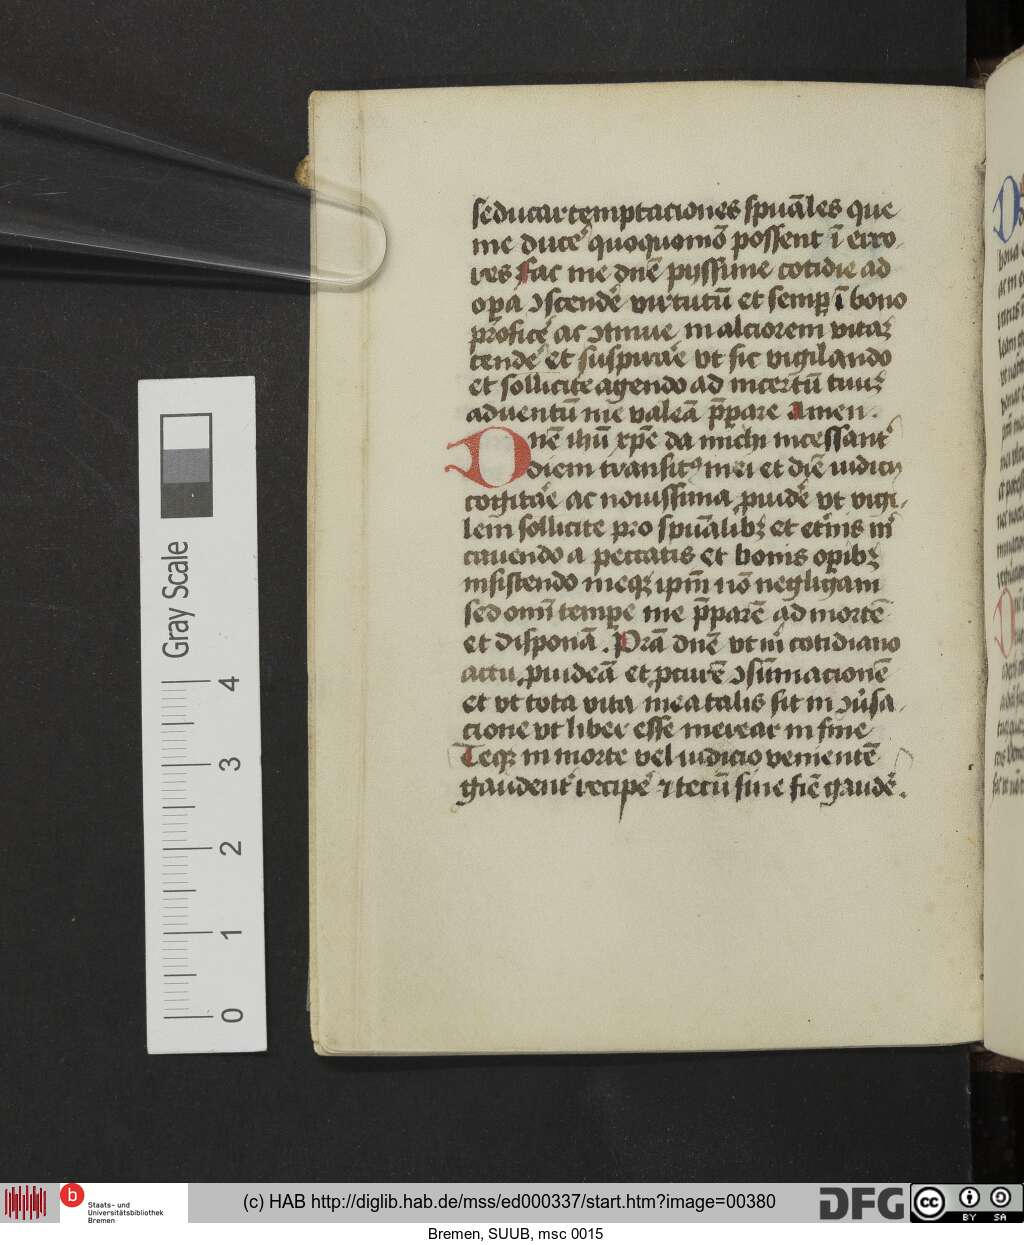 seducar temptaciones spūāles que
me ducē quoquomō possent ī erro
res Fac me dnē pijssime cotidie ad
opa ɔscendē virtutū et semp ī bono
proficē ac ɔtinue in alciorem vitaꝫ
tendē et suspirāe vt sic vigilando
et sollicite agendo ad incertū tuuꝫ
aduentū me valeā p̄pare Amen .
Dnē ihū xp̄e da michi incessant
diem transitꝰ mei et diē iudicij
cogitāe ac nouissima ꝓuidē vt vigi
lem sollicite pro spūālibꝫ et et̄nis in
cauendo a peccatis et bonis opibꝫ
insistendo meqꝫ ip̄m nō negligam
sed omī tempe me p̄parē ad mortē
et disponā . Prā dnē vt in cotidiano
actu ꝓuideā et pcurē ɔsūmacionē
et vt tota vita mea talis sit in ɔūsa
cione vt liber esse merear in fine
Teqꝫ in morte vel iudicio venientē
gaudent recipē ⁊ tecū sine fiē gaudē .
Gray Scale
4
3
2
1
0
b
Staats- und
Universitätsbibliothek
Bremen
(c) HAB http://diglib.hab.de/mss/ed000337/start.htm?image=00380
DFG
cc
BY SA
Bremen, SUUB, msc 0015